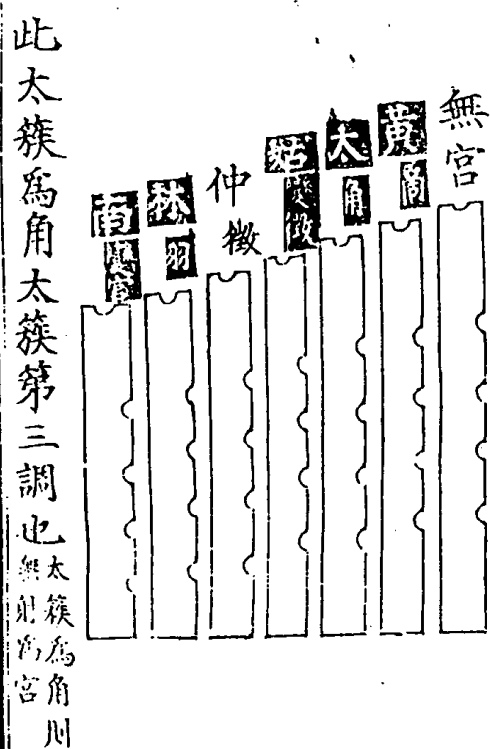 無宮
黃商
太角
姑變徵
仲徵
林羽
南變宮
此太簇爲角太簇第三調也太簇爲角則
無射爲宮